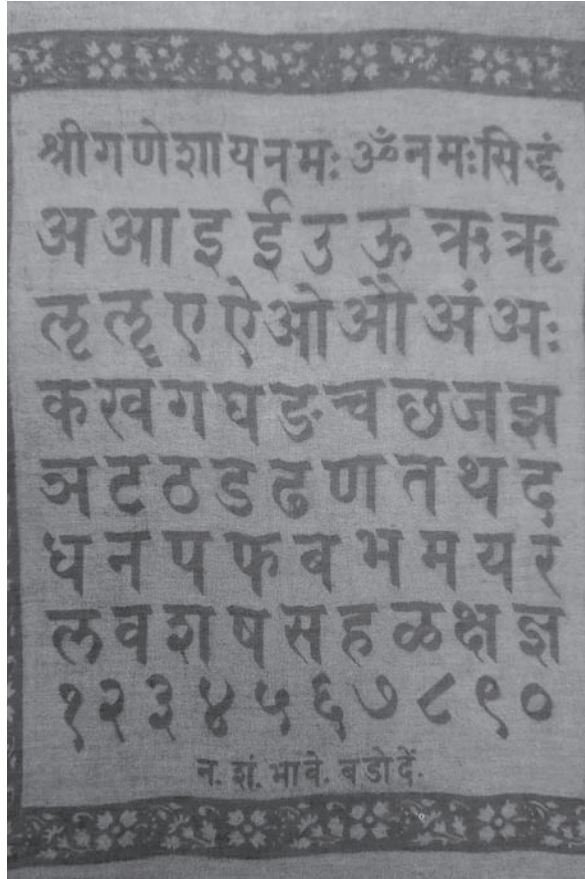 श्रीगणेशायनमः ॐनमःसिद्धं
अ आ इ ई उ ऊ ऋ ॠ
ऌ ॡ ए ऐ ओ औ अं अः
क ख ग घ ङ च छ ज झ
ञ ट ठ ड ढ ण त थ द
ध न प फ ब भ म य र
ल व श ष स ह ळ क्ष ज्ञ
१ २ ३ ४ ५ ६ ७ ८ ९ ०
न. शं. भावे. बडोदें.